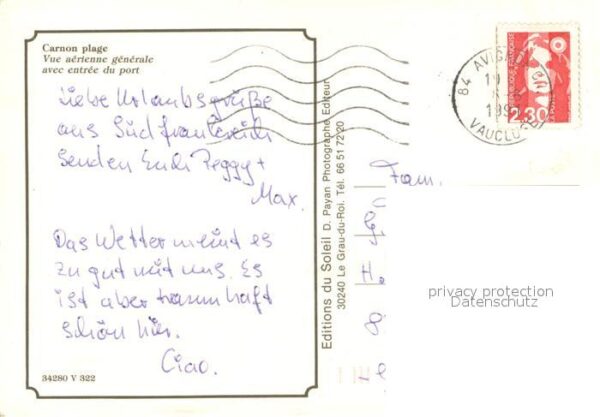 Carnon plage
Vue aérienne générale
avec entrée du port
Liebe Urlaubsgrüße
aus Südfrankreich
senden Euch Peggy +
Max.
Das Wetter meint es
zu gut mit uns. Es
ist aber traumhaft
schön hier.
Ciao.
34280 V 322
Editions du Soleil D. Payan Photographe Editeur
30240 Le Grau-du-Roi. Tél. 66 51 72 20
84 AVIG
19
VAUCLUSE
REPUBLIQUE FRANÇAISE
2,30
LA POSTE
Fam.
privacy protection
Datenschutz